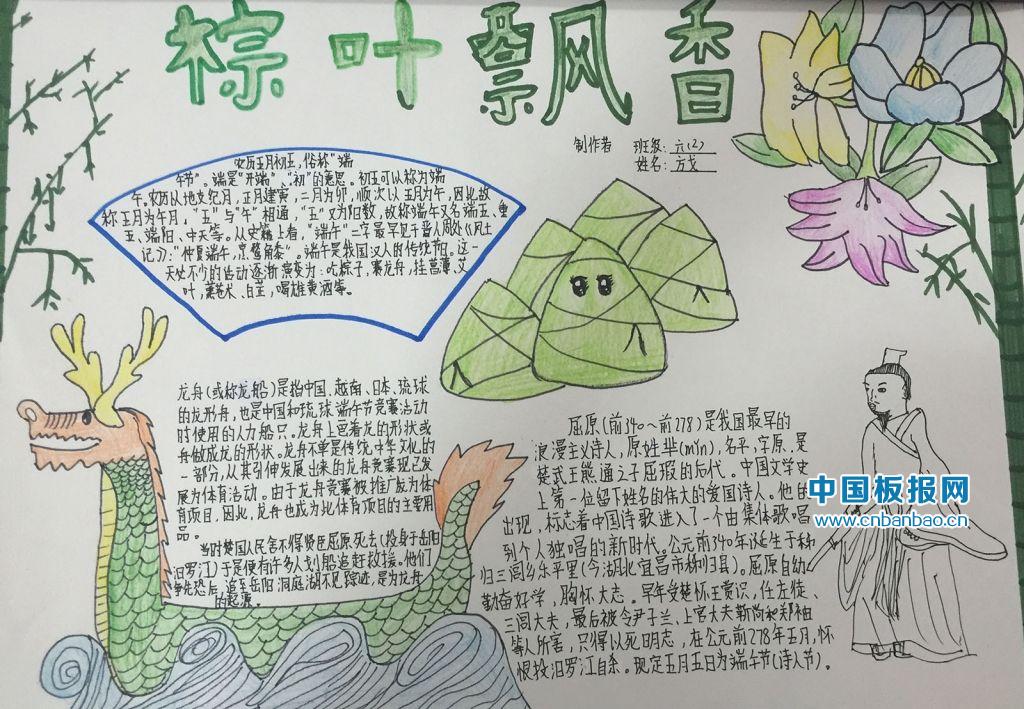 棕叶飘香
制作者 班级:六(2)
姓名:方戈
农历五月初五,俗称"端
午节"。端是"开端"、"初"的意思。初五可以称为端
午。农历以地支纪月,正月建寅,二月为卯,顺次以五月为午,因此故
称五月为午月,"五"与"午"相通,"五"又为阳数,故称端午又名端五、重
五、端阳、中天等。从史籍上看,"端午"一字最早见于晋人周处《风土
记》:"仲夏端午,烹鹜角黍"。端午是我国汉人的传统节日。这一
天必不少的活动逐渐演变为:吃粽子,赛龙舟,挂菖蒲、艾
叶,薰苍术、白芷,喝雄黄酒等。
龙舟(或称龙船)是指中国、越南、日本、琉球
的龙形舟,也是中国和琉球端午节竞赛活动
时使用的人力船只。龙舟上画着龙的形状或
舟做成龙的形状。龙舟不单是传统中华文化的
一部分,从其引伸发展出来的龙舟竞赛现已发
展为体育活动。由于龙舟竞赛被推广成为体
育项目,因此,龙舟也成为此体育项目的主要用
品。
当时楚国人民舍不得贤臣屈原死去(投身于岳阳
汨罗江)于是便有许多人划船追赶救援。他们
争先恐后,追至岳阳洞庭湖不见踪迹,是为龙舟
的起源。
屈原(前340~前278)是我国最早的
浪漫主义诗人,原姓芈(mǐn),名平,字原,是
楚武王熊通之子屈瑕的后代。中国文学史
上第一位留下姓名的伟大的爱国诗人。他的
出现,标志着中国诗歌进入了一个由集体歌唱
到个人独唱的新时代。公元前340年诞生于秭
归三闾乡乐平里(今湖北宜昌市秭归县)。屈原自幼
勤奋好学,胸怀大志。早年受楚怀王赏识,任左徒、
三闾大夫,最后被令尹子兰、上官大夫靳尚和郑袖
等人所害,只得以死明志,在公元前278年五月,怀
恨投汨罗江自杀。现定五月五日为端午节(诗人节)。
中国板报网
www.cnbanbao.cn